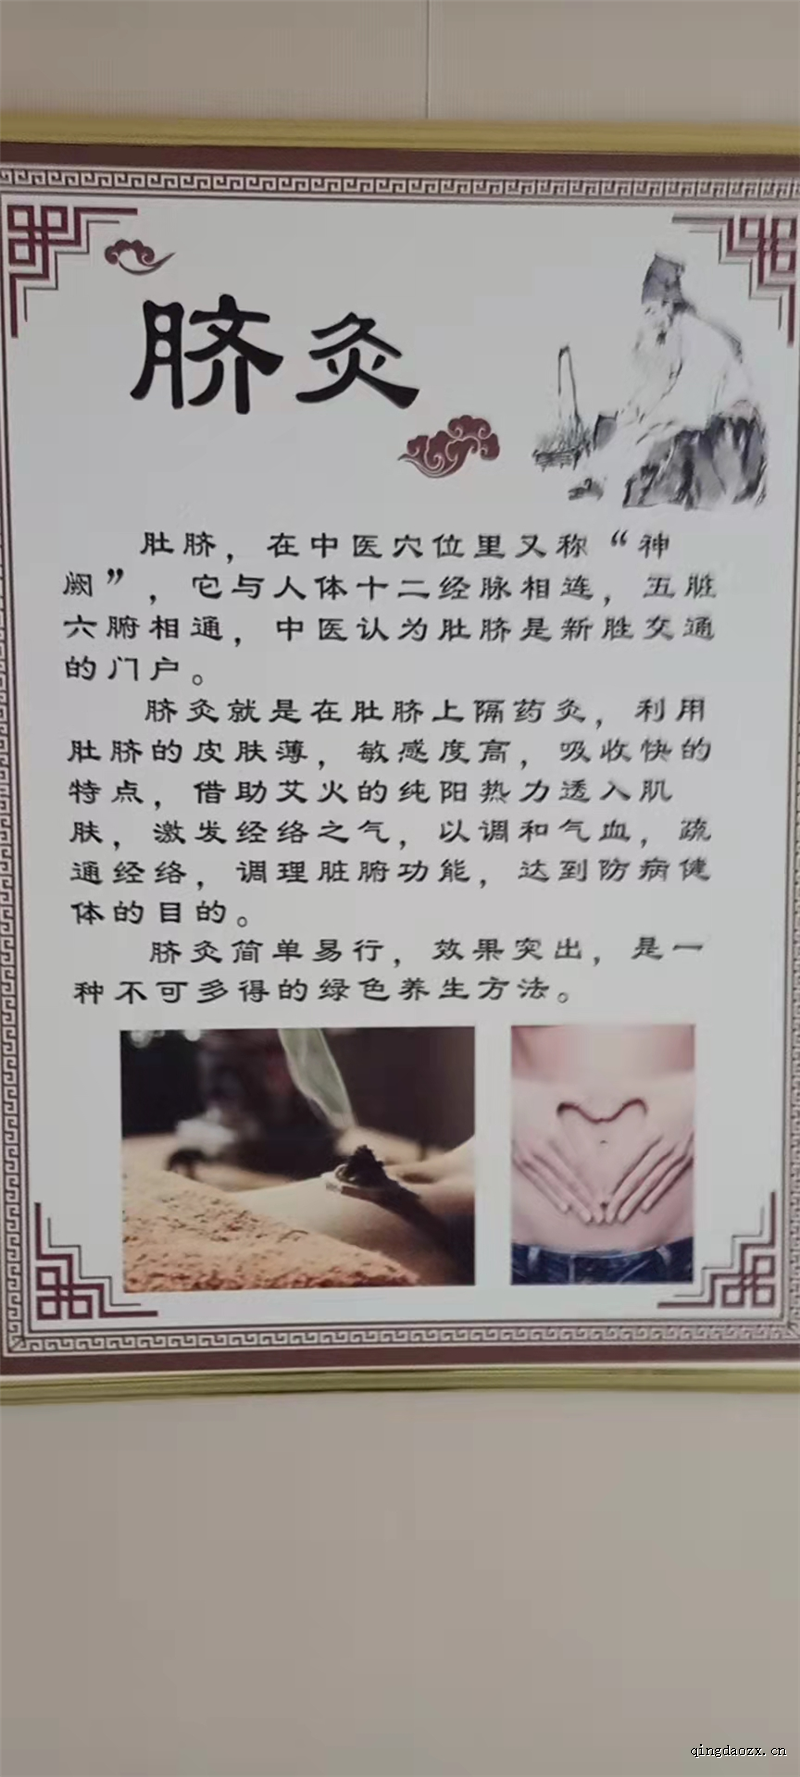 脐灸
肚脐，在中医穴位里又称“神
阙”，它与人体十二经脉相连，五脏
六腑相通，中医认为肚脐是新胜交通
的门户。
脐灸就是在肚脐上隔药灸，利用
肚脐的皮肤薄，敏感度高，吸收快的
特点，借助艾火的纯阳热力透入肌
肤，激发经络之气，以调和气血，疏
通经络，调理脏腑功能，达到防病健
体的目的。
脐灸简单易行，效果突出，是一
种不可多得的绿色养生方法。
qingdaozx.cn